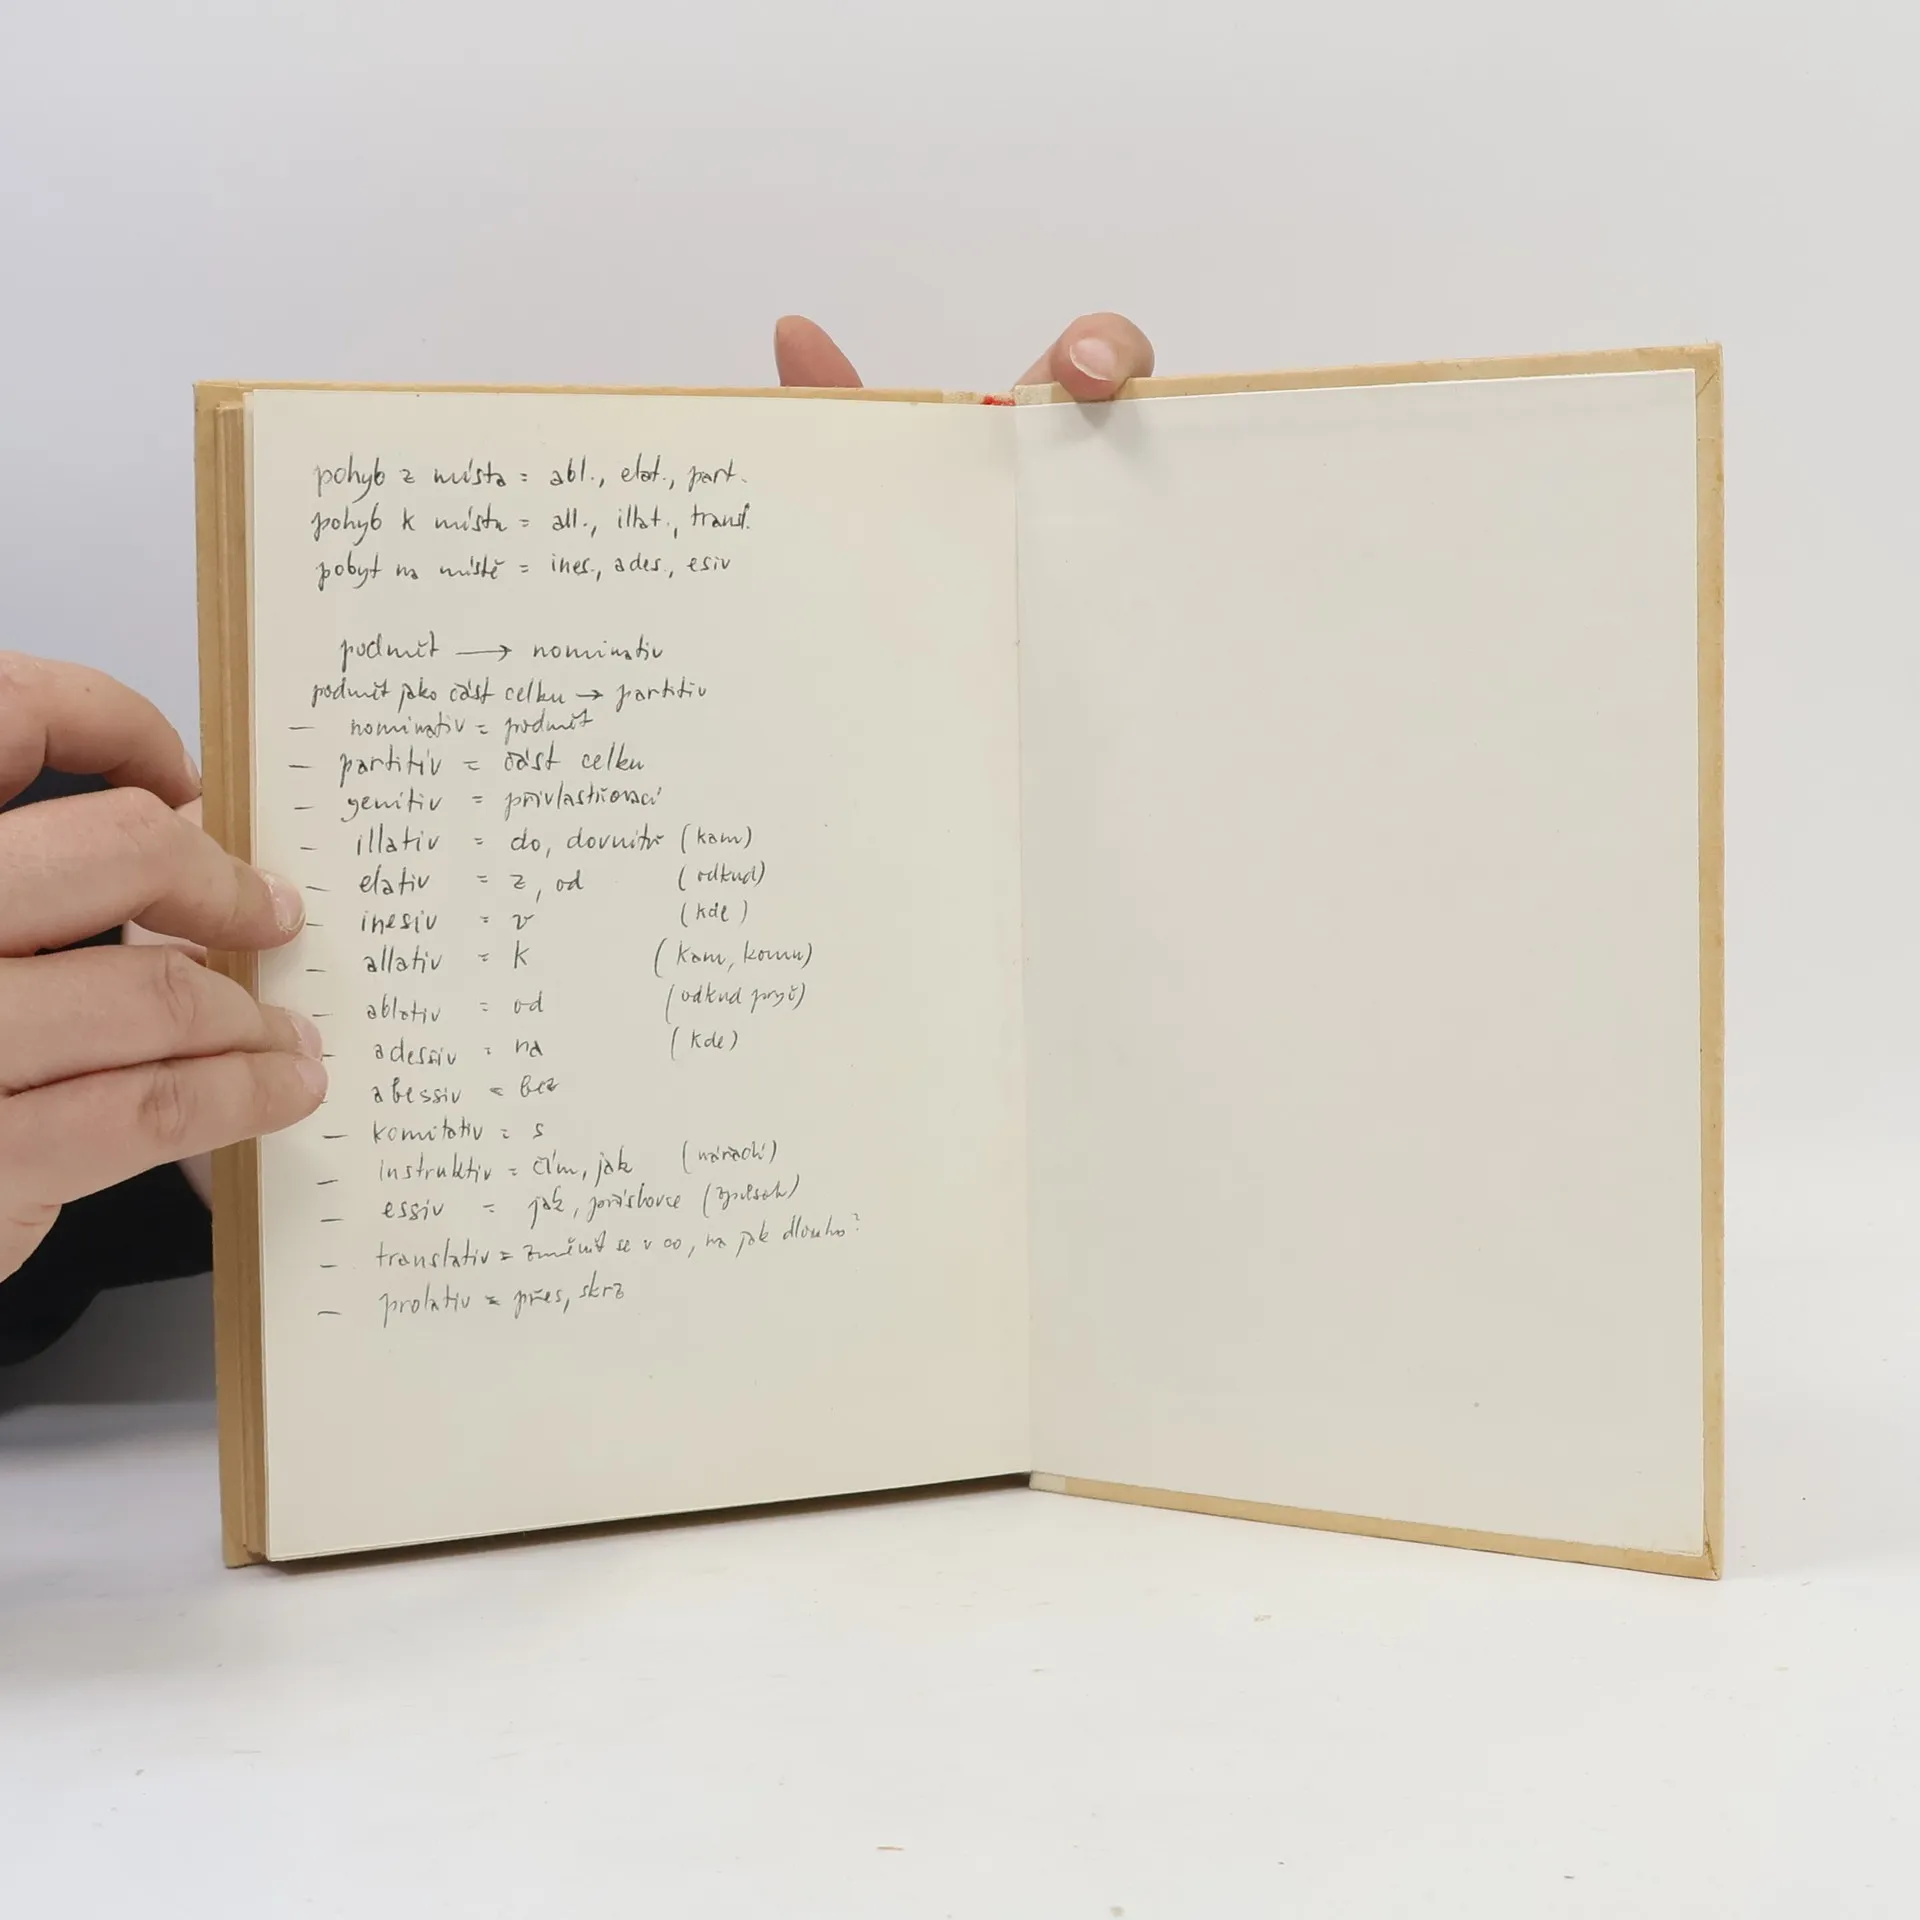 pohyb z místa = abl., elat., part.
pohyb k místu = all., illat., transl.
pobyt na místě = ines., ades., esiv
podmět → nominativ
podmět jako část celku → partitiv
— nominativ = podmět
— partitiv = část celku
— genitiv = přivlastňovací
— illativ = do, dovnitř (kam)
— elativ = z, od (odkud)
— inesiv = v (kde)
— allativ = k (kam, komu)
— ablativ = od (odkud pryč)
— adessiv = na (kde)
— abessiv = bez
— komitativ = s
— instruktiv = čím, jak (nářadí)
— essiv = jak, příslovce (způsob)
— translativ = změnit se v co, na jak dlouho?
— prolativ = přes, skrz